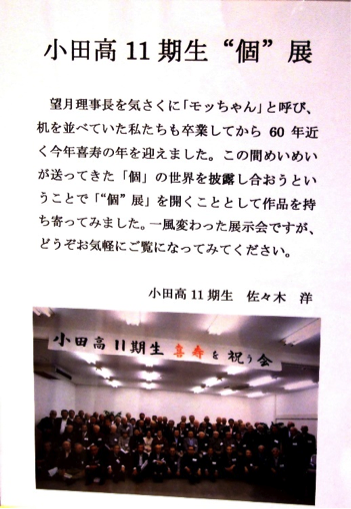 小田高11期生“個”展
望月理事長を気さくに「モッちゃん」と呼び、
机を並べていた私たちも卒業してから 60 年近
く今年喜寿の年を迎えました。この間めいめい
が送ってきた「個」の世界を披露し合おうとい
うことで「“個”展」を開くこととして作品を持
ち寄ってみました。一風変わった展示会ですが、
どうぞお気軽にご覧になってみてください。
小田高11期生　佐々木　洋
小田高11期生 喜寿を祝う会